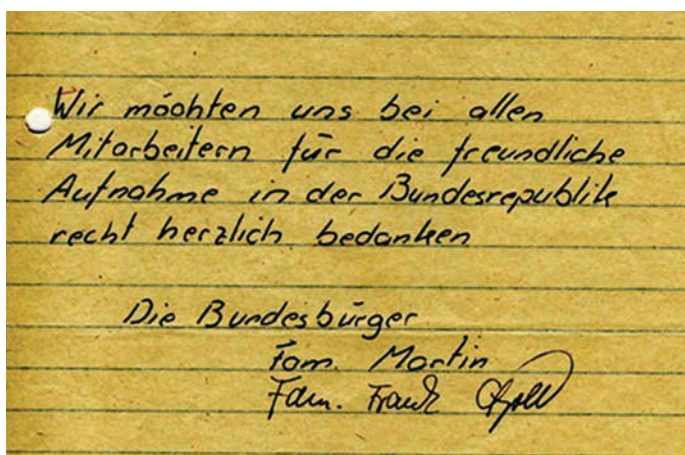 Wir möchten uns bei allen
Mitarbeitern für die freundliche
Aufnahme in der Bundesrepublik
recht herzlich bedanken
Die Bundesbürger
Fam. Martin
Fam. Frank